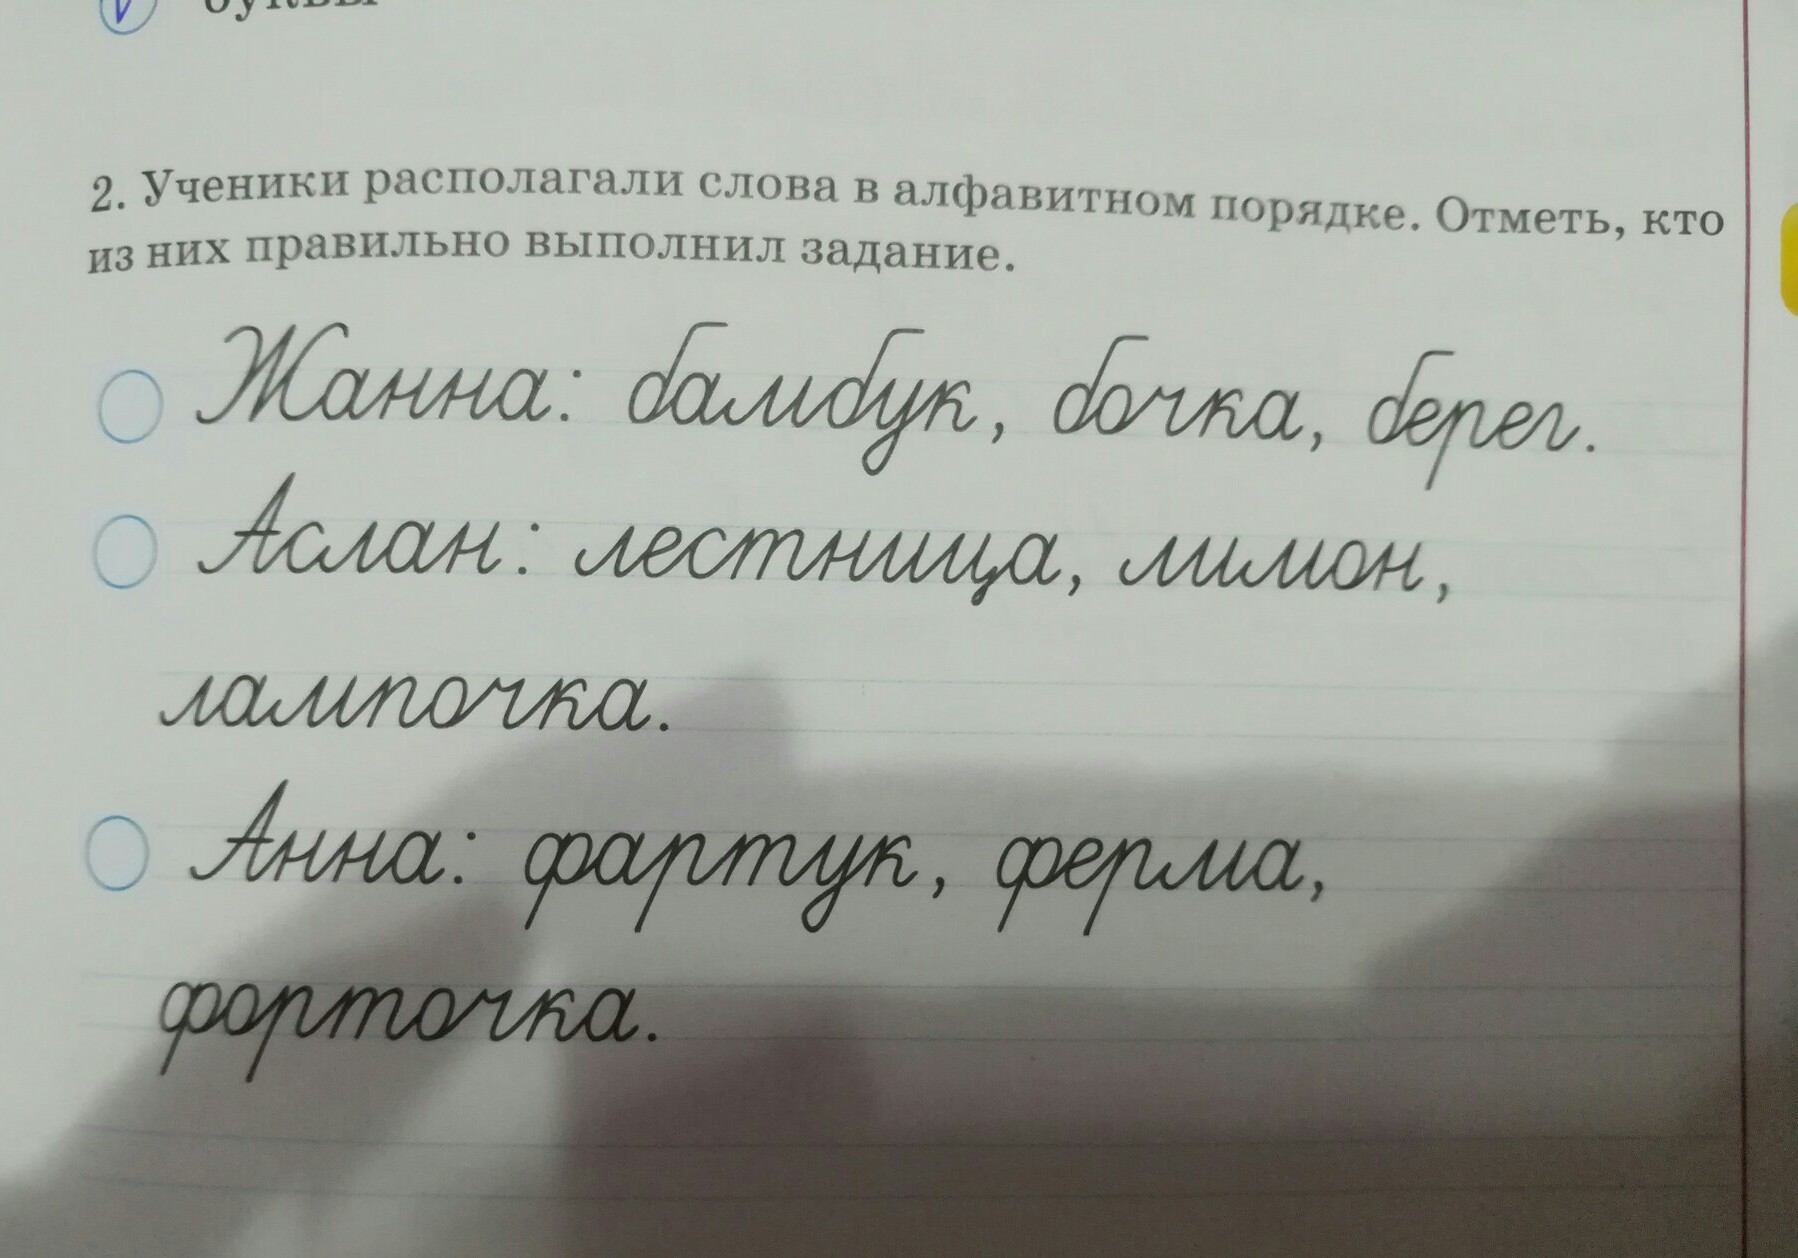 буквы
2. Ученики располагали слова в алфавитном порядке. Отметь, кто
из них правильно выполнил задание.
Жанна: бамбук, бочка, берег.
Аслан: лестница, лимон,
лампочка.
Анна: фартук, ферма,
форточка.